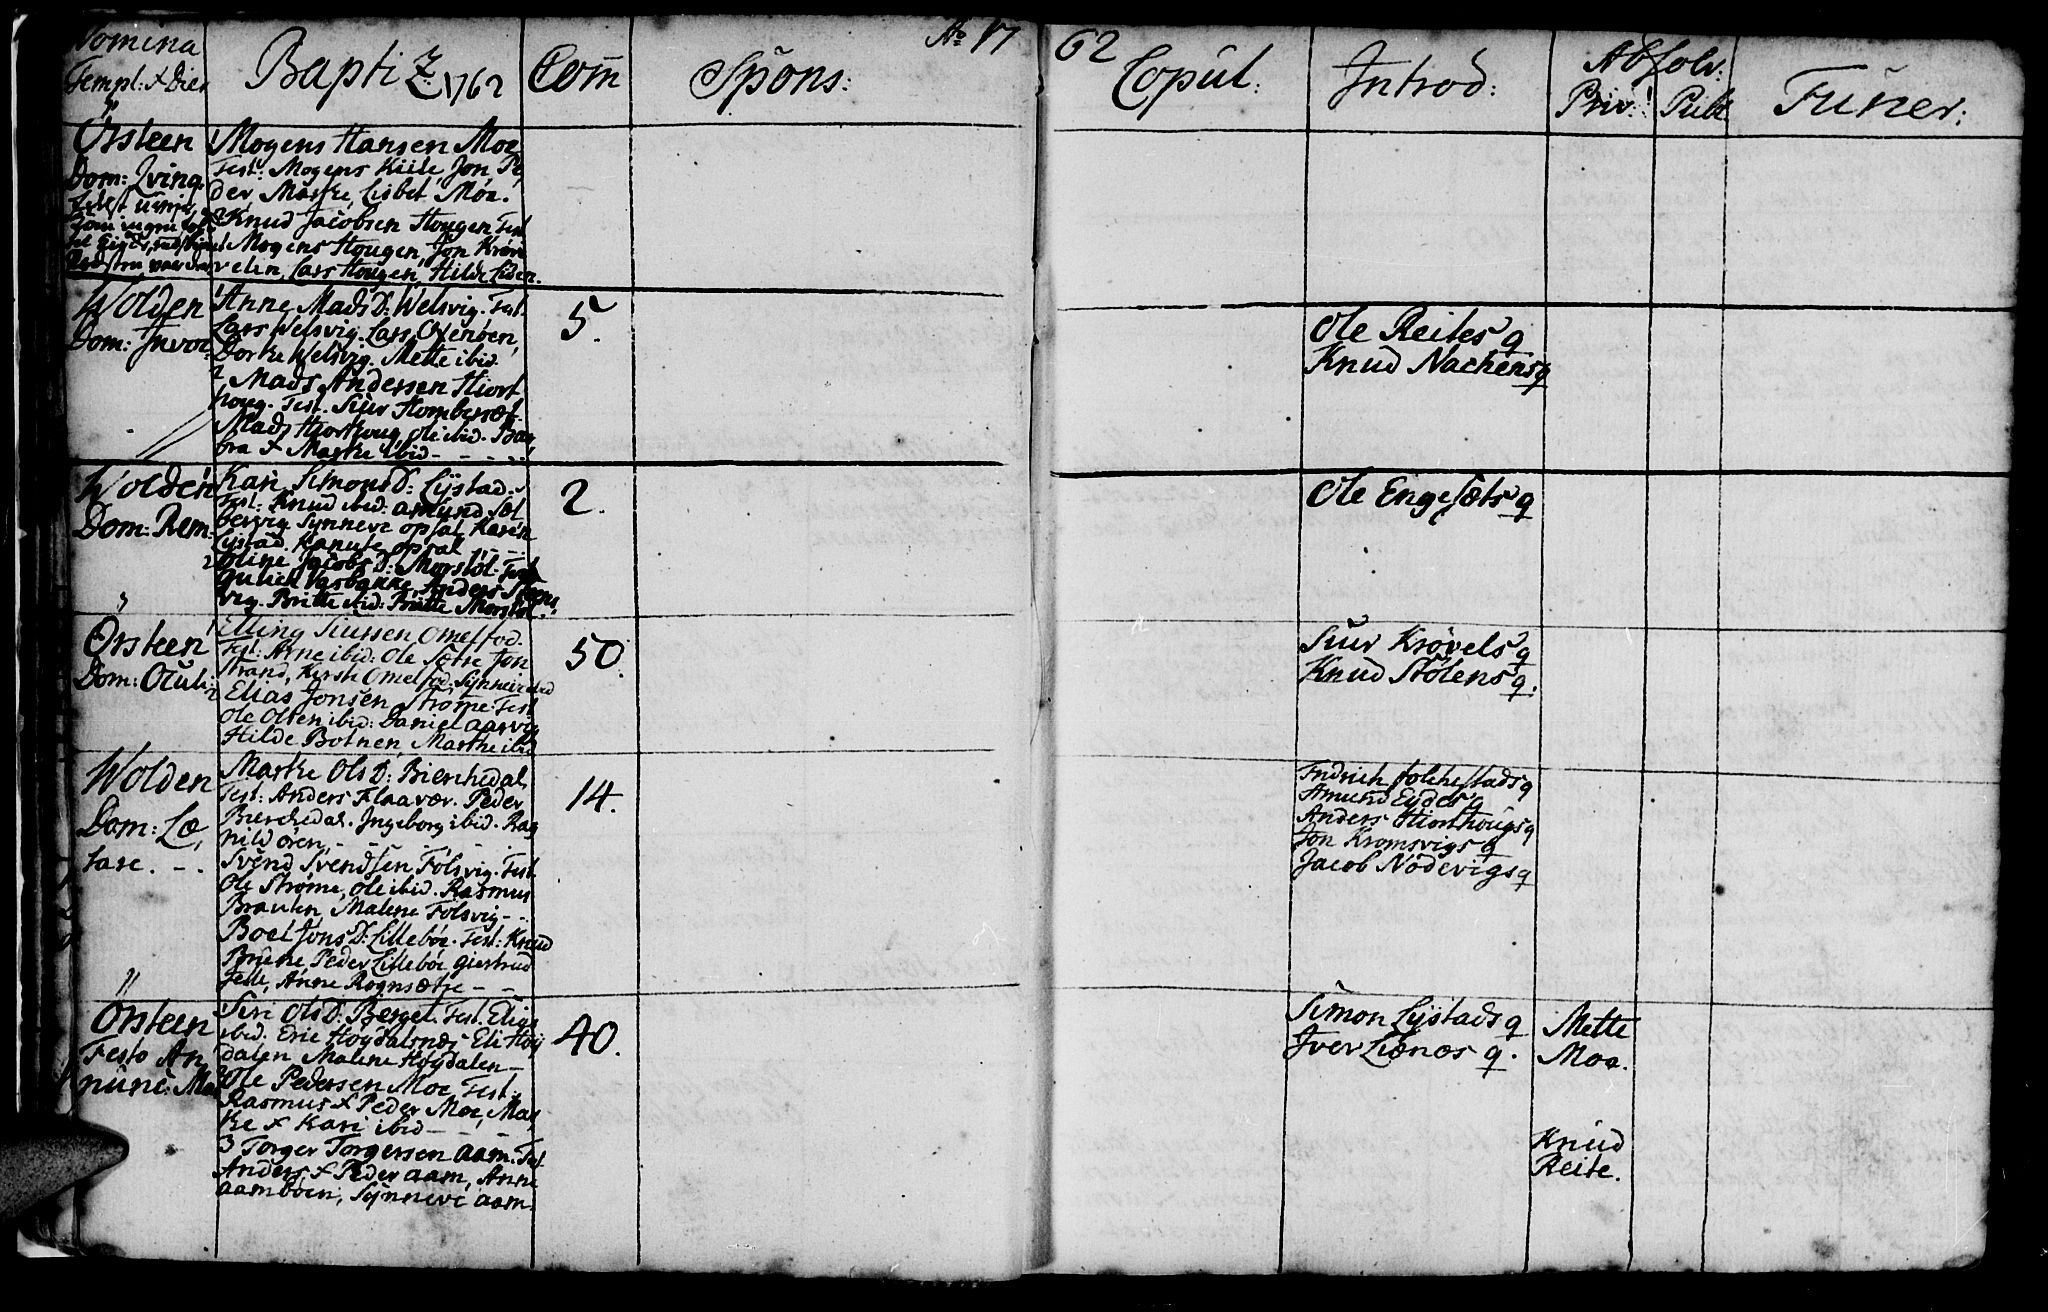 Nomina
Templ: & Dier
Baptiz: 1762
Com
Spons:
Ao 17
62
Copul:
Introd:
Absolv:
Priv:
Publ
Funer:
Ørsteen
Dom: Qvinq.
Som ingen kom
Præsten var der
Mogens Hansen Moe
Test: Mogens Kiile, Jon Pe,
der, Marke, Lisbet Moe.
2 Knud Jacobsen Hougen Test
Mogens Hougen, Jon Krøn
velen, Lars Hougen, Hilde Liden.
Wolden
Dom: Invoc:
Anne Mads D: Welsvig. Test.
Lars Welsvig. Lars Osenøen,
Dorte Welsvig. Mette ibid.
2 Mads Andersen Hiort
houg. Test. Siur Homberset
Mads Hiorthoug, Ole ibid. Bar,
bra & Marke ibid - - - -
5.
Ole Reites q
Knud Nachens q
Wolden
Dom: Rem.
Kari Simons D: Lystad.
Test: Knud ibid: Amund Sæt
bervig Synneve Opsal Karen
Lystad. Kanute Opsal
2 Oline Jacobs D: Morstøl. Test
Gulick Vasbakke, Anders Steens
vig. Britte ibid: Britte Morstøl.
2.
Ole Engesæts q
Ørsteen
Dom: Oculi:
Elling Siursen Omelfod.
Test: Arne ibid: Ole Sætre Jon
Strand, Kirsti Omelfod: Synneve ibid
2 Elias Jonsen Strøme. Test
Ole Olsen ibid: Daniel Aarvig
Hilde Botnen, Marthe ibid
50.
Siur Krøvels q
Knud Stølens q.
Wolden
Dom: Læ,
tare. - -
Marke Ols D: Bierchedal,
Test: Anders Flaavær. Peder
Bierchedal. Ingeborg ibid. Rag
nild Øren, - - - -
Svend Svendsen Folsvig. Test
Ole Strøme, Ole ibid. Rasmus
Brauten, Malene Folsvig - -
Boel Jons D: Lillebøe. Test: Knud
Brune Peder Lillebøe Giertrud
Felle, Anne Rognsætre - -
14.
Endrich Folchestads q
Amund Eydes q
Anders Hiorthougs q
Jon Kromsvigs q
Jacob Nødevigs q
Ørsteen
Festo An,
nunc: Ma
Siri Ols D: Berget. Test. Elias
ibid. Eric Høydalsnæs Eli Høy
dalen Malene Høydalen -
2 Ole Pedersen Moe Test.
Rasmus & Peder Moe, Mar
ke & Kari ibid - - -
3 Torger Torgersen Aam. Test
Anders & Peder Aam, Anne
Aambøen, Synneve Aam.
40.
Simon Lystads q
Iver Liænæs q.
Mette
Moe.
Knud
Reite.